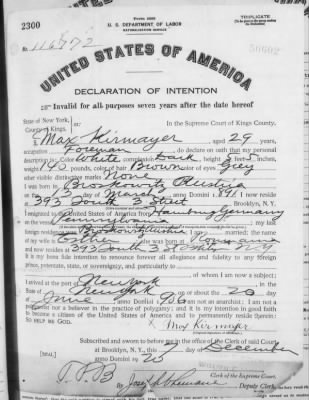 Form 2203
TRIPLICATE
2300
U. S. DEPARTMENT OF LABOR
NATURALIZATION SERVICE
No. 116772
50602
UNITED STATES OF AMERICA
DECLARATION OF INTENTION
Invalid for all purposes seven years after the date hereof
State of New York,
County of Kings,
ss:
In the Supreme Court of Kings County.
I, Max Kirmayer, aged 29 years,
occupation Foreman, do declare on oath that my personal
description is: Color White, complexion Dark, height 5 feet inches,
weight pounds, color of hair Brown, color of eyes Grey
other visible distinctive marks None
I was born in Austria
on the day of March, anno Domini 1891; I now reside
at 393 South 3 Street, Brooklyn, N. Y.
I emigrated to the United States of America from Hamburg Germany
on the vessel Pennsylvania; my last
foreign residence was Austria; I am married; the name
of my wife is Esther; she was born in Roumania
and now resides at 393 South 3 St
It is my bona fide intention to renounce forever all allegiance and fidelity to any foreign
prince, potentate, state, or sovereignty, and particularly to
of whom I am now a subject;
I arrived at the port of New York, in the
State of New York, on or about the 20 day
of June, anno Domini 1906; I am not an anarchist; I am not a
polygamist nor a believer in the practice of polygamy; and it is my intention in good faith
to become a citizen of the United States of America and to permanently reside therein:
SO HELP ME GOD.
Max Kirmayer
Subscribed and sworn to before me in the office of the Clerk of said Court
at Brooklyn, N. Y., this 7 day of December
anno Domini 1920
[SEAL]
Clerk of the Supreme Court.
By
Deputy Clerk.